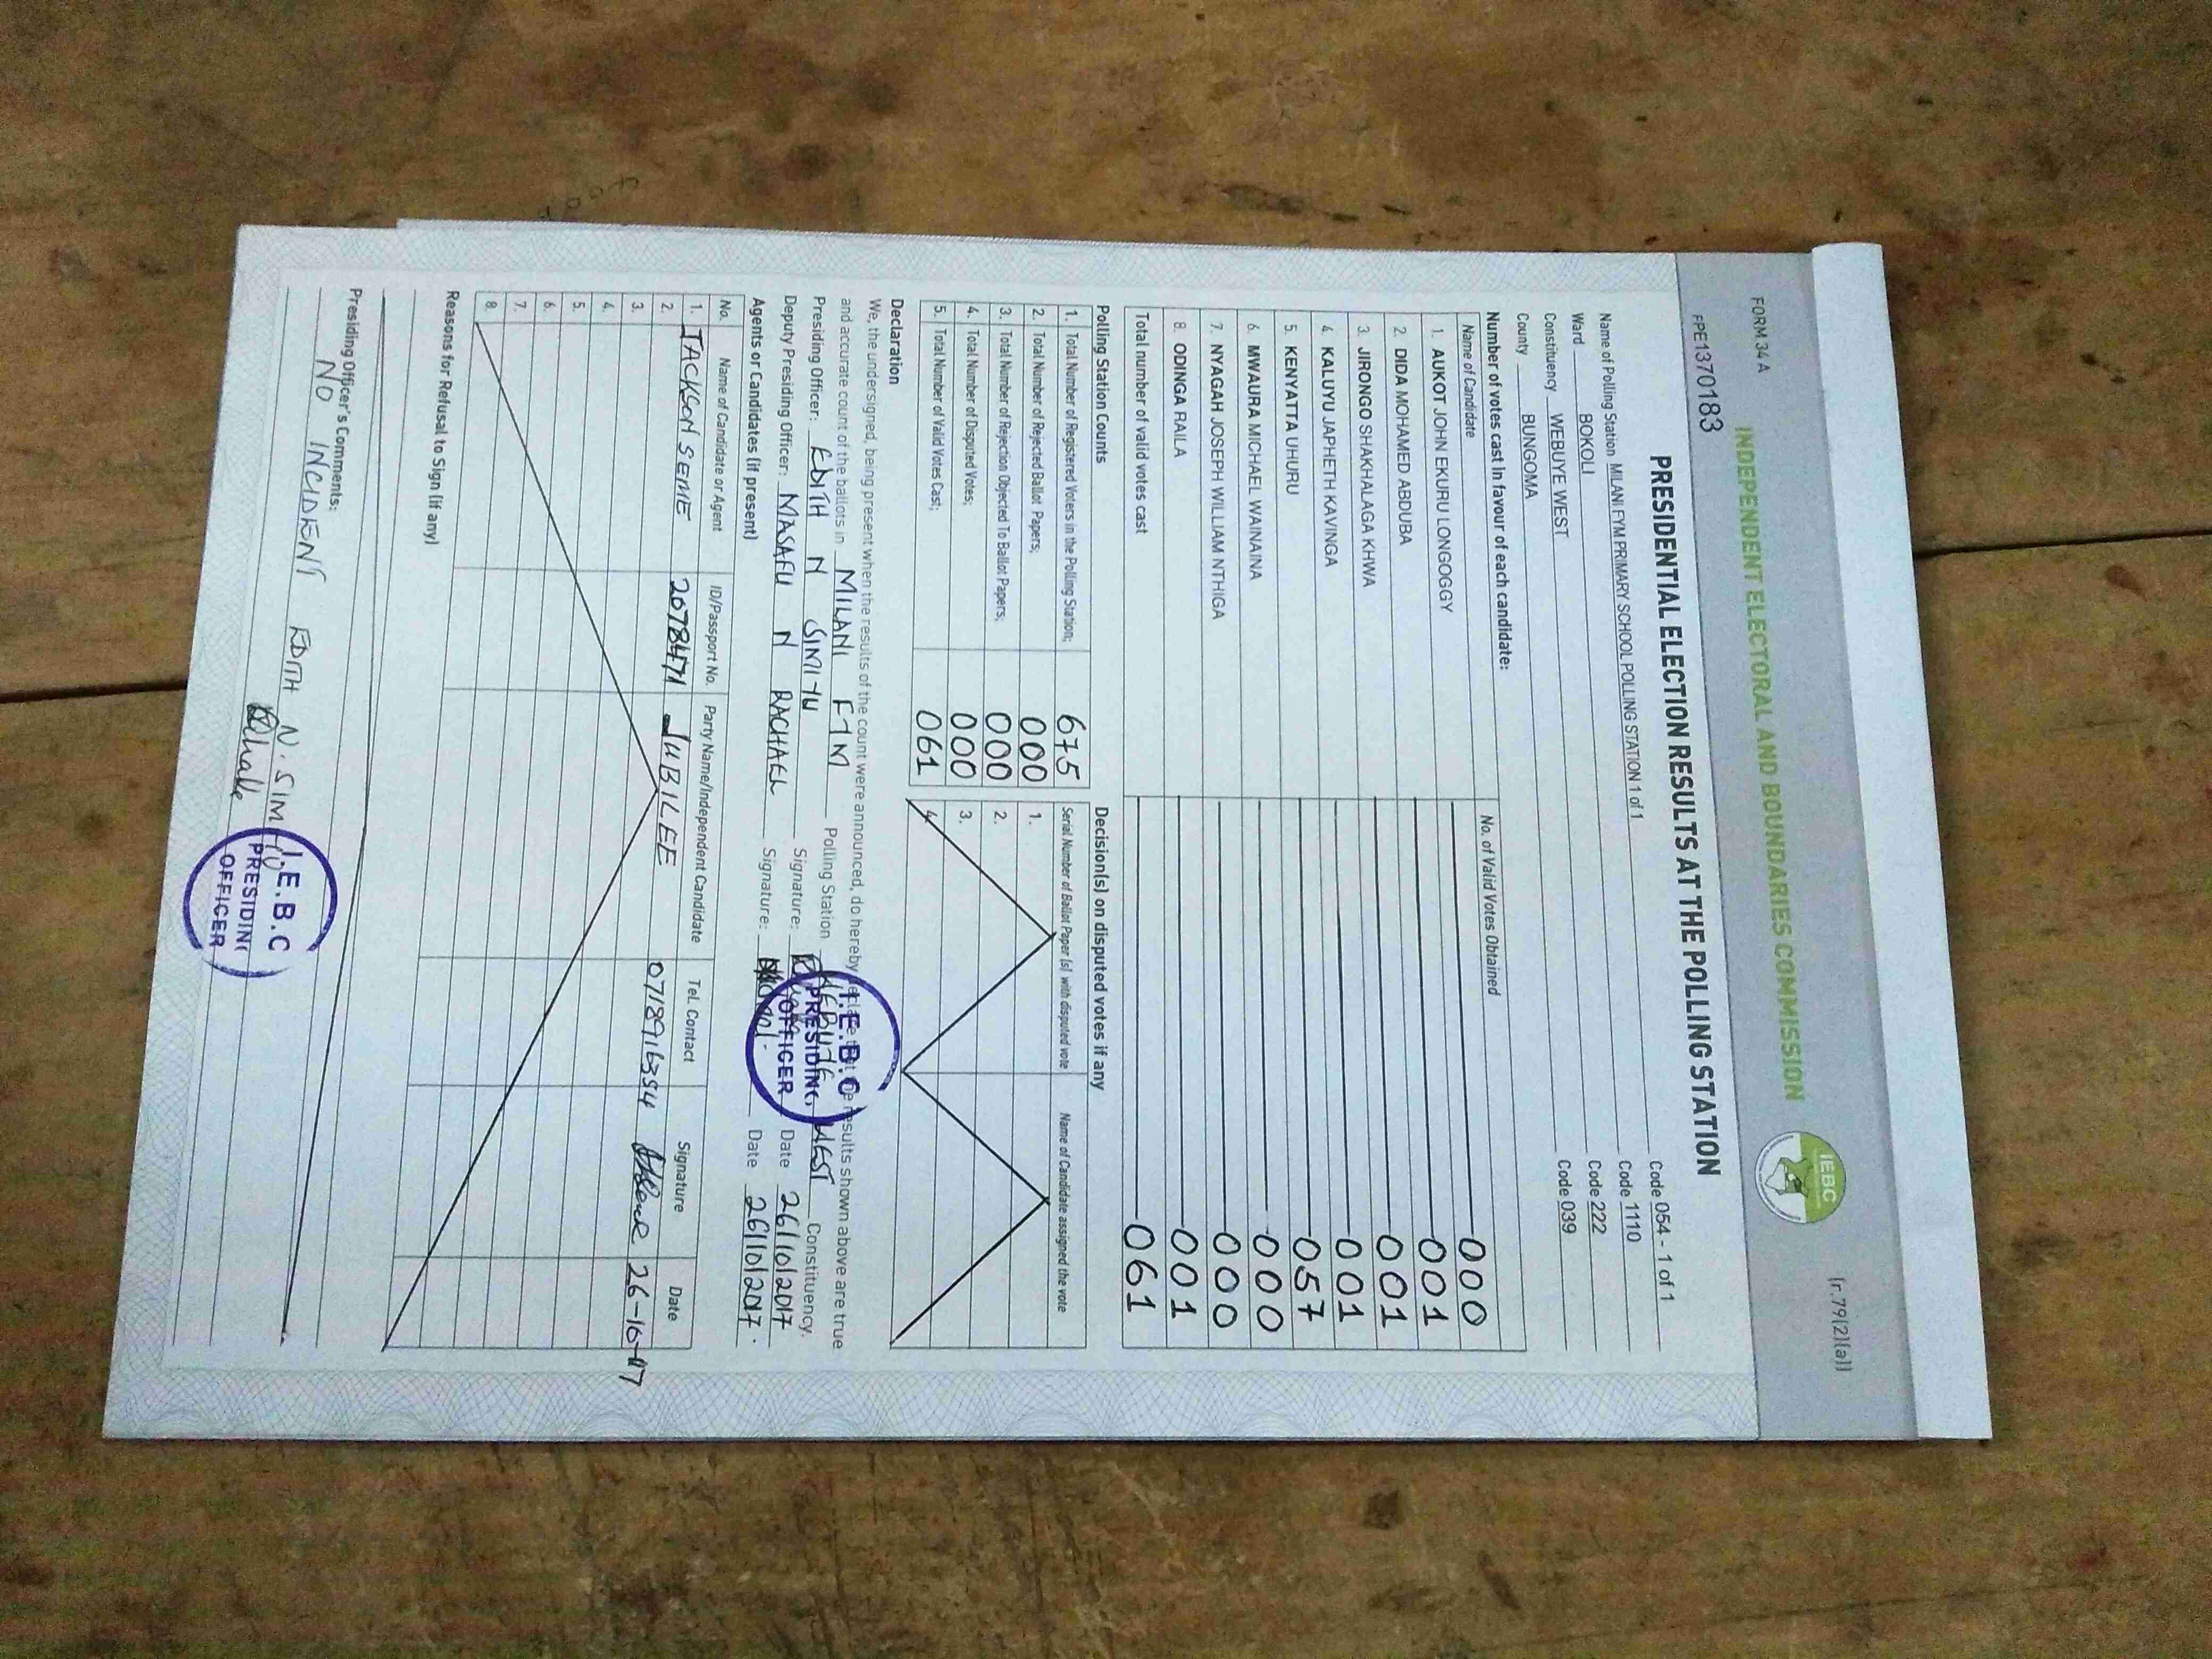 FORM 34 A
(r.79(2)(a))
INDEPENDENT ELECTORAL AND BOUNDARIES COMMISSION
IEBC
FPE1370183
PRESIDENTIAL ELECTION RESULTS AT THE POLLING STATION
Name of Polling Station MILANI FYM PRIMARY SCHOOL POLLING STATION 1 of 1 Code 054 - 1 of 1
Ward BOKOLI Code 1110
Constituency WEBUYE WEST Code 222
County BUNGOMA Code 039
Number of votes cast in favour of each candidate:
Name of Candidate No. of Valid Votes Obtained
1. AUKOT JOHN EKURU LONGOGGY 000
2. DIDA MOHAMED ABDUBA 001
3. JIRONGO SHAKHALAGA KHWA 001
4. KALUYU JAPHETH KAVINGA 001
5. KENYATTA UHURU 057
6. MWAURA MICHAEL WAINAINA 000
7. NYAGAH JOSEPH WILLIAM NTHIGA 000
8. ODINGA RAILA 001
Total number of valid votes cast 061
Polling Station Counts
1. Total Number of Registered Voters in the Polling Station; 675
2. Total Number of Rejected Ballot Papers; 000
3. Total Number of Rejection Objected To Ballot Papers; 000
4. Total Number of Disputed Votes; 000
5. Total Number of Valid Votes Cast; 061
Decision(s) on disputed votes if any
Serial Number of Ballot Paper (s) with disputed vote Name of Candidate assigned the vote
1.
2.
3.
4.
Declaration
We, the undersigned, being present when the results of the count were announced, do hereby declare that the results shown above are true
and accurate count of the ballots in MILANI FYM Polling Station WEBUYE WEST Constituency.
Presiding Officer: EDITH N SIMIYU Signature: Date 26/10/2017
Deputy Presiding Officer: MASAFU N RACHAEL Signature: Date 26/10/2017.
I.E.B.C
PRESIDING
OFFICER
Agents or Candidates (if present)
No. Name of Candidate or Agent ID/Passport No. Party Name/Independent Candidate Tel. Contact Signature Date
1. JACKSON SEME 20784771 JUBILEE 0718916354 26-10-17
2.
3.
4.
5.
6.
7.
8.
Reasons for Refusal to Sign (if any)
Presiding Officer's Comments:
NO INCIDENT EDITH N. SIMIYU
I.E.B.C
PRESIDING
OFFICER